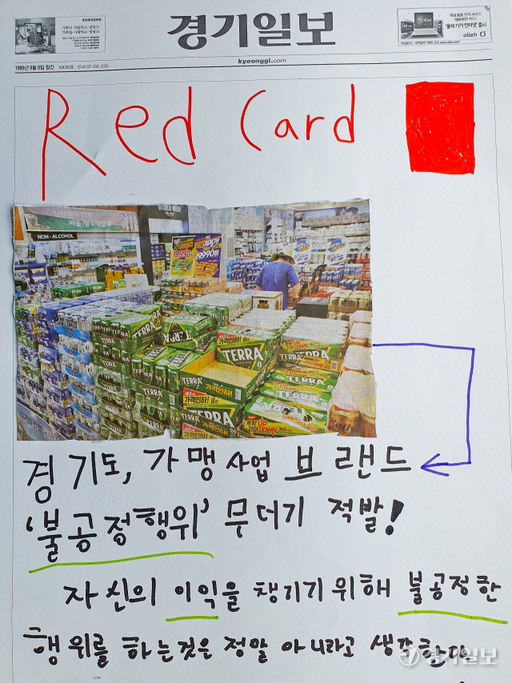 경기일보
olleh
kyeonggi.com
Red Card
NON-ALCOHOL
TERRA
TERRA
TERRA
TERRA
경기도, 가맹사업 브랜드
'불공정행위' 무더기 적발!
자신의 이익을 챙기기 위해 불공정한
행위를 하는것은 정말 아니라고 생각한다
경기일보